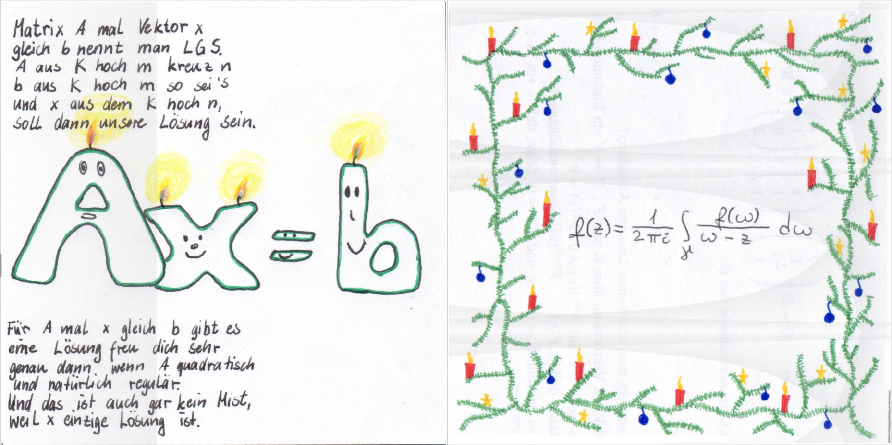 Matrix A mal Vektor x
gleich b nennt man LGS.
A aus K hoch m kreuz n
b aus K hoch m so sei's
und x aus dem K hoch n,
soll dann unsere Lösung sein.
Ax=b
Für A mal x gleich b gibt es
eine Lösung freu dich sehr
genau dann wenn A quadratisch
und natürlich regulär.
Und das ist auch gar kein Mist,
weil x einzige Lösung ist.
f(z) = 1/2πi ∫γ f(ω)/ω-z dω